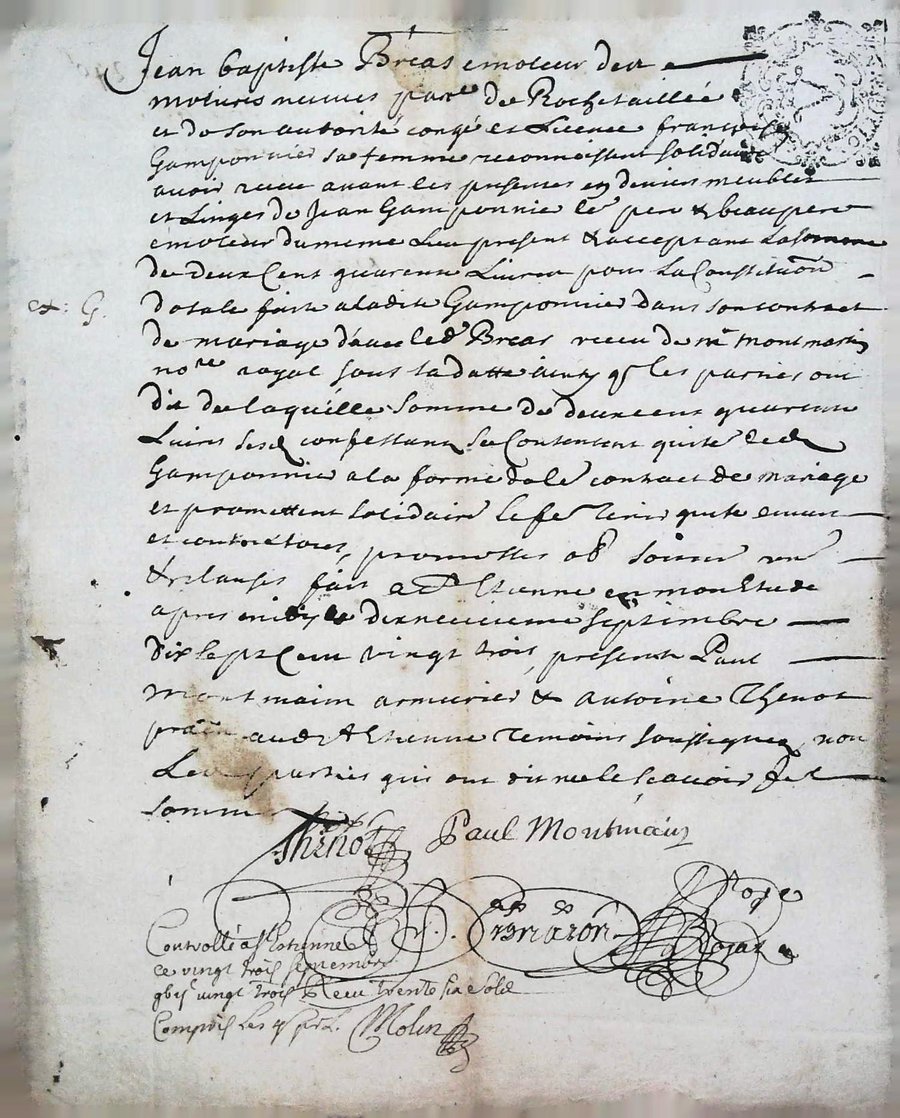 Jean baptiste Breas emoleur de
molieres neuves parce de Rochetaillée
et de son autorité congé et Licence francoise
Gamponnier sa femme reconnoissent solidaire
avoir receu avant les presentes en deniers meubles
et Linges de Jean Gamponnie le pere & beaupere
emoleur du meme Lieu present & acceptant la somme
de deux Cent quarente Livres pour La Constituon
dotale faite a ladite Gamponnier dans son contract
ex: G.
de mariage d'avec led Breas receu de me montmartin
nore royal sous la datte qe les parties ont
dit de laquelle somme de deux cent quarente
Livres confessants se Contentent quite led
Gamponnie a la forme de contract de mariage
et promettent solidaire le fe tenir quite envers
et contre tous, promettes ob soumr renr
& clauses fait a St Etienne en mon Etude
apres midy le dixneuvieme septembre
dix sept Cent vingt trois, presents Paul
montmaim armurier & antoine Thenot
pratn aud St Etienne temoins soussignez non
Les parties qui ont dit ne le scavoir de ce
sommes
Thenot Paul Montmain
Controllé a St Etienne
ce vingt trois septembre
vingt trois Receu trente six sols
Compris les 4 s pr L. Molin